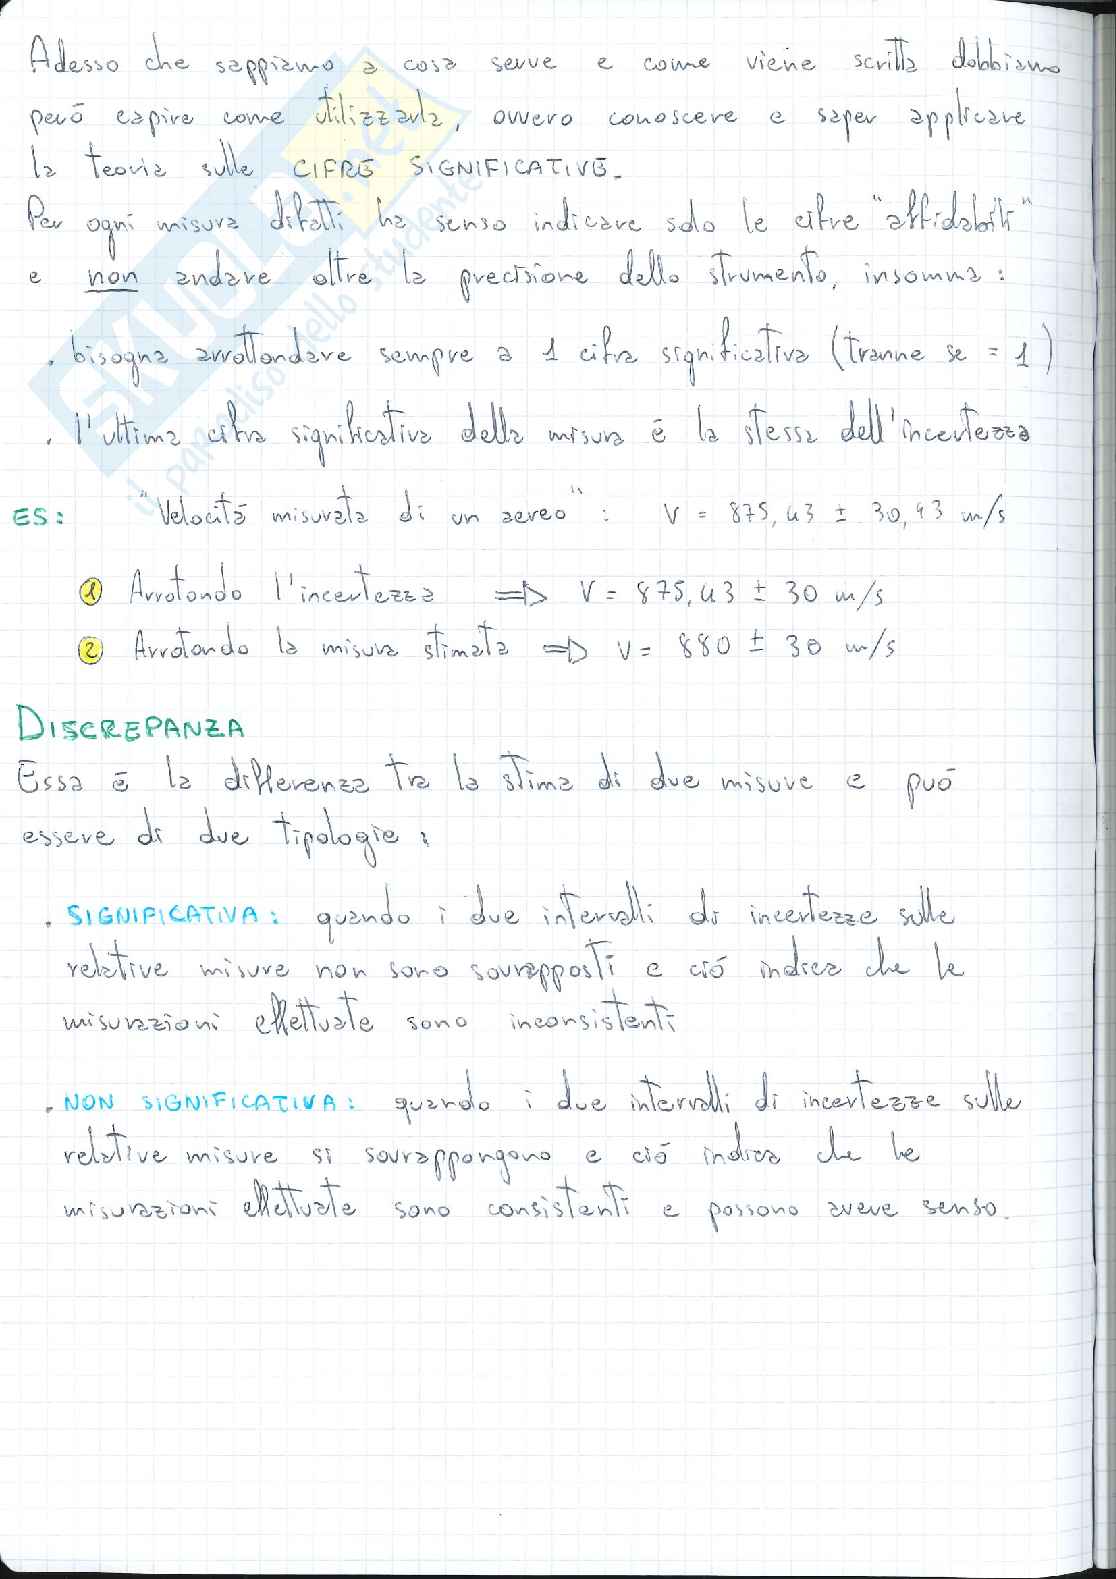 Adesso che sappiamo a cosa serve e come viene scritta dobbiamo
però capire come utilizzarla, ovvero conoscere e saper applicare
la teoria sulle CIFRE SIGNIFICATIVE.
Per ogni misura difatti ha senso indicare solo le cifre "affidabili"
e non andare oltre la precisione dello strumento, insomma:
. bisogna arrotondare sempre a 1 cifra significativa (tranne se = 1)
. l'ultima cifra significativa della misura è la stessa dell'incertezza
ES: "Velocità misurata di un aereo": V = 875,43 ± 30,93 m/s
1 Arrotondo l'incertezza ⇒ V = 875,43 ± 30 m/s
2 Arrotondo la misura stimata ⇒ V = 880 ± 30 m/s
DISCREPANZA
Essa è la differenza tra la stima di due misure e può
essere di due tipologie:
. SIGNIFICATIVA: quando i due intervalli di incertezze sulle
relative misure non sono sovrapposti e ciò indica che le
misurazioni effettuate sono inconsistenti
. NON SIGNIFICATIVA: quando i due intervalli di incertezze sulle
relative misure si sovrappongono e ciò indica che le
misurazioni effettuate sono consistenti e possono avere senso.
SKUOLA.net
il paradiso dello studente